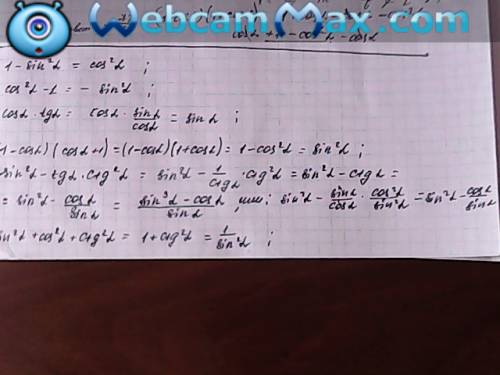 WebcamMax.com
cosα + 1 - cosα - cosα
1 - sin²α = cos²α ;
cos²α - 1 = - sin²α ;
cosα · tgα = cosα · sinα/cosα = sinα ;
1-cosα)(cosα+1) = (1-cosα)(1+cosα) = 1-cos²α = sin²α ;
sin²α - tgα · ctg²α = sin²α - 1/ctgα · ctg²α = sin²α - ctgα =
= sin²α - cosα/sinα = sin³α - cosα/sinα , или: sin²α - sinα/cosα · cos²α/sin²α = sin²α - cosα/sinα
sin²α + cos²α + ctg²α = 1 + ctg²α = 1/sin²α ;